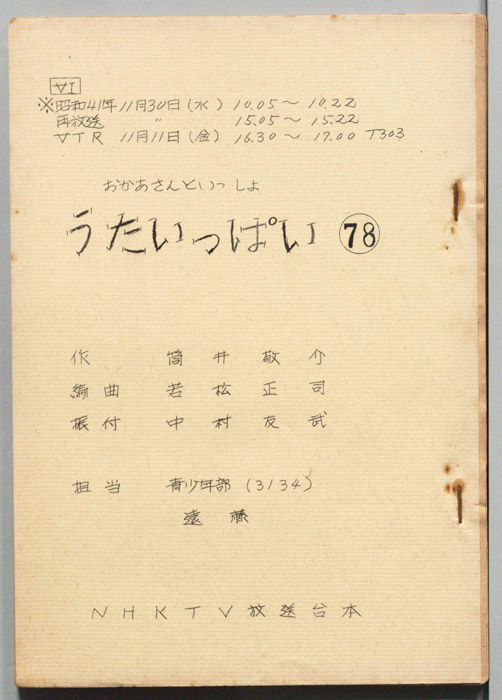 VI
※昭和41年11月30日(水) 10.05～10.22
再放送 〃 15.05～15.22
VTR 11月11日(金) 16.30～17.00 T303
おかあさんといっしよ
うたいっぱい 78
作 筒井敬介
編曲 若松正司
振付 中村友武
担当 青少年部(3134)
遠藤
NHKTV放送台本